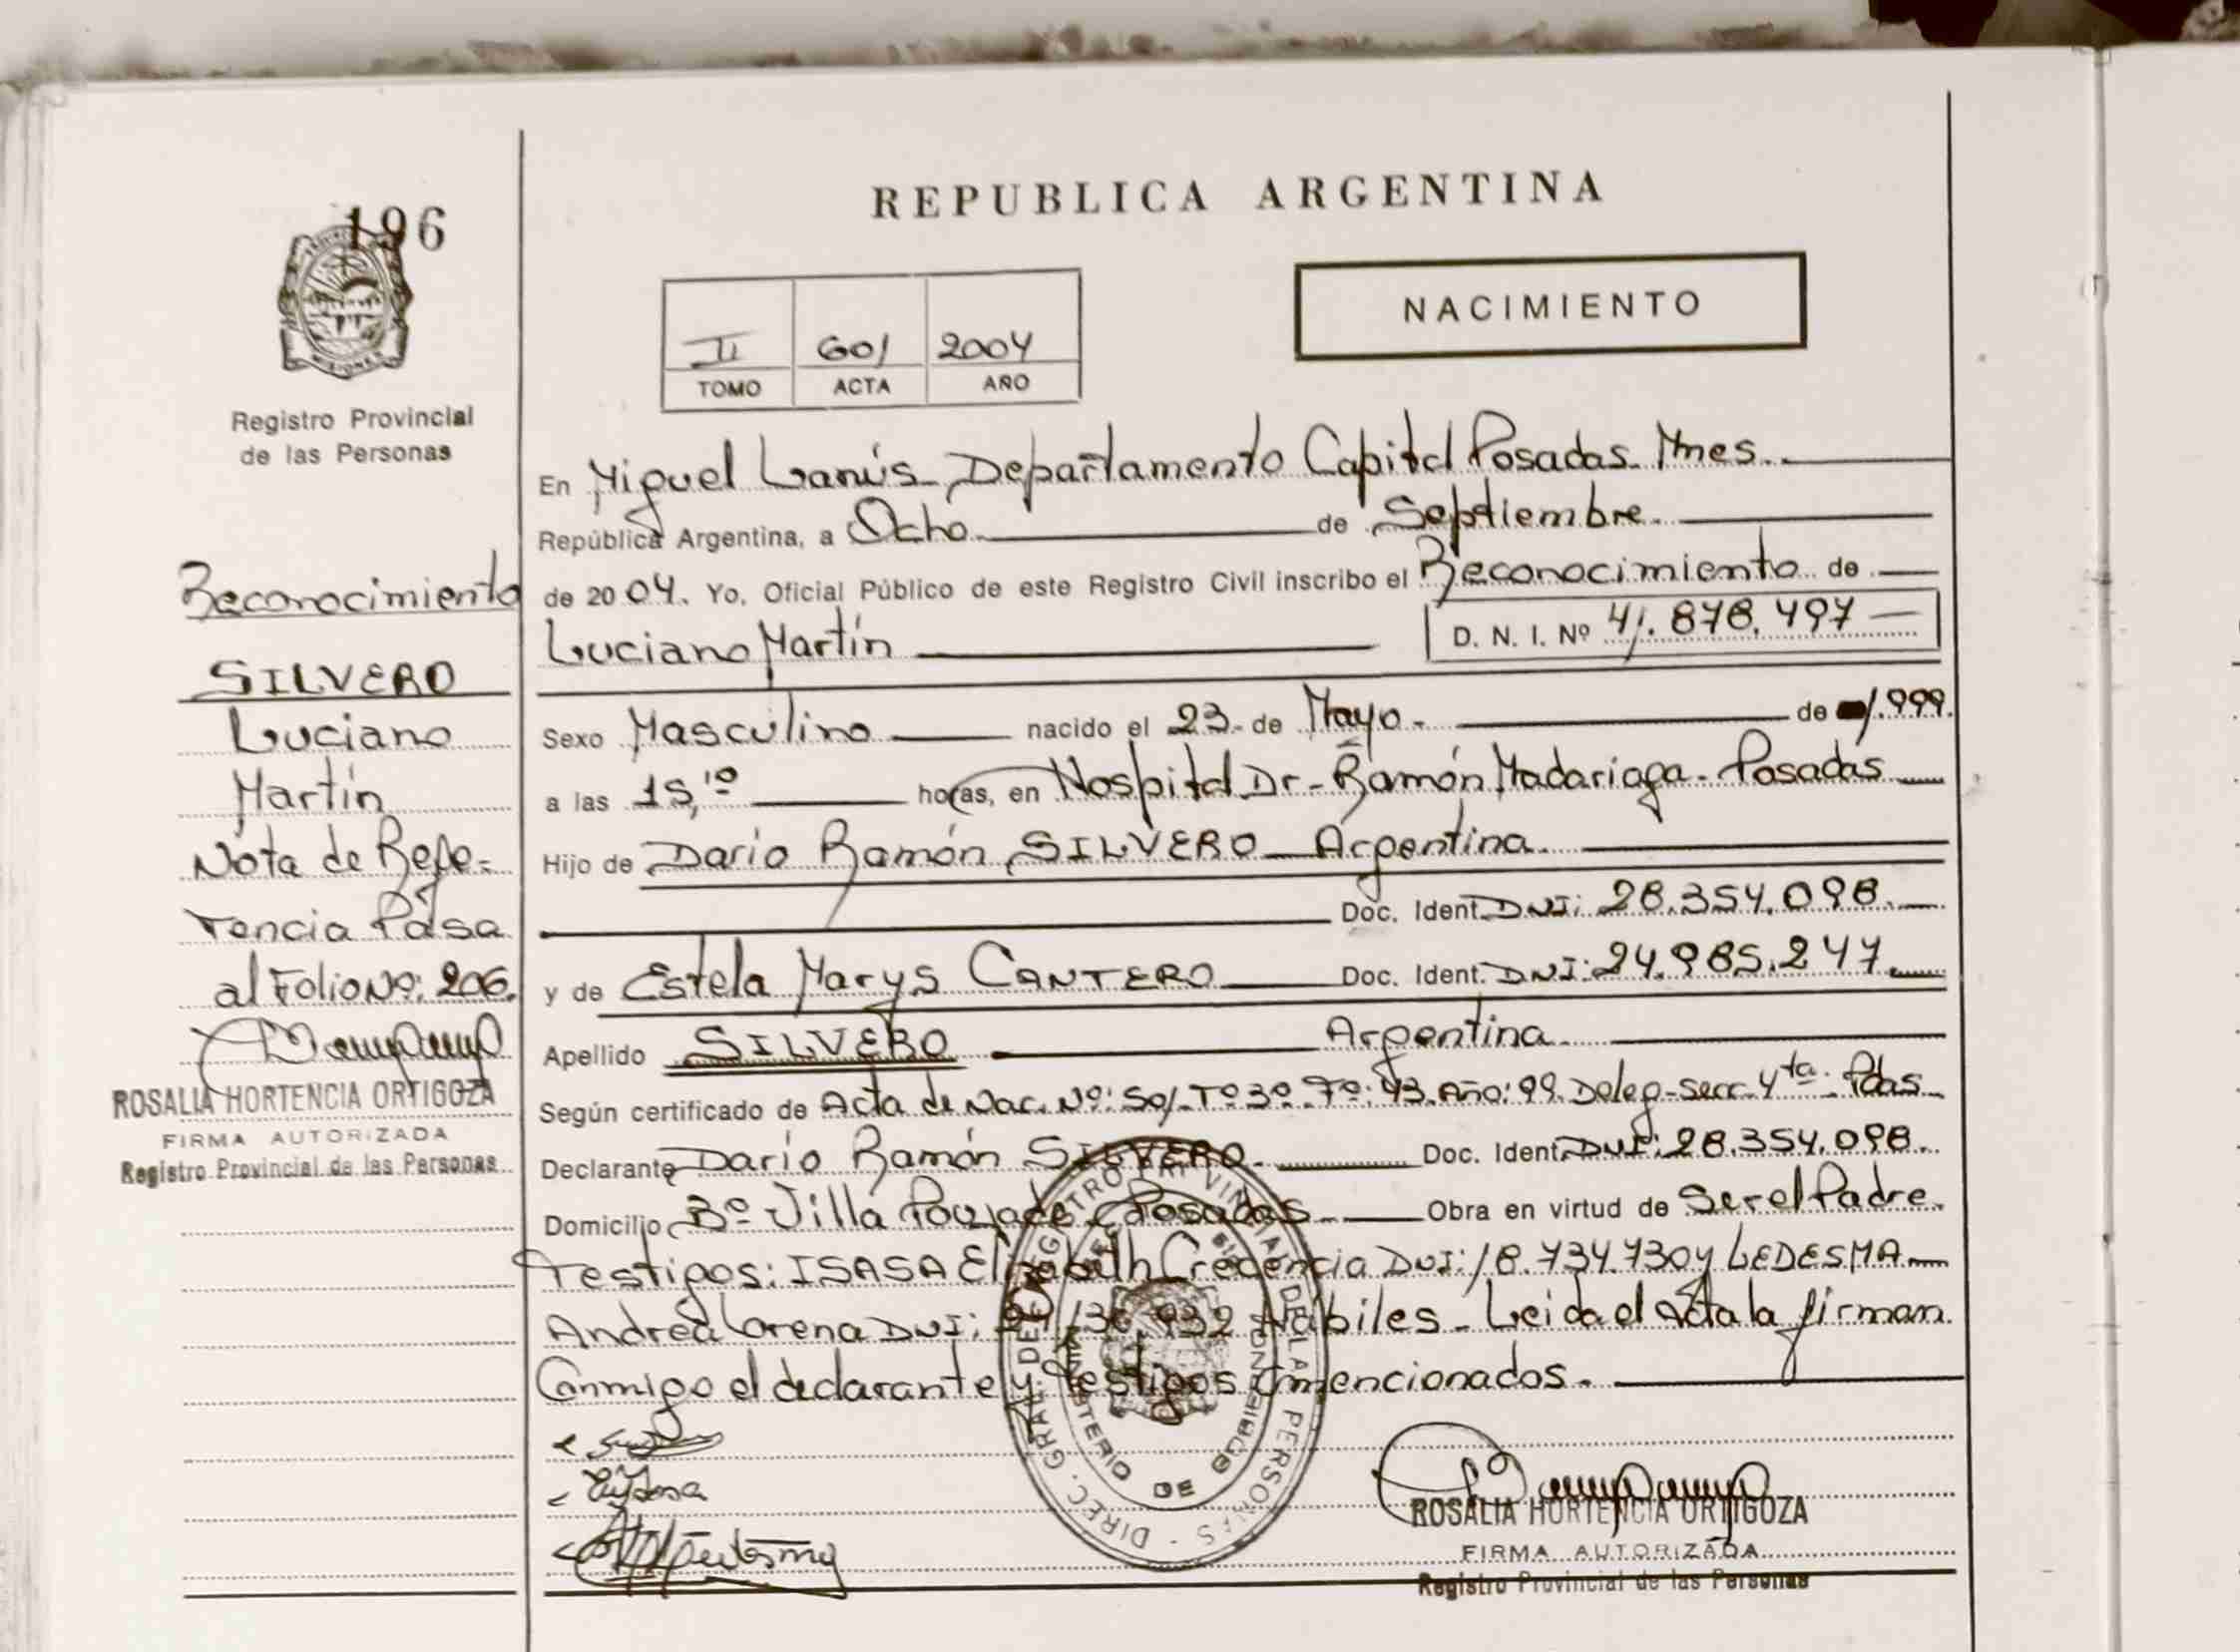 196
Registro Provincial
de las Personas
REPUBLICA ARGENTINA
NACIMIENTO
II 601 2004
TOMO ACTA AÑO
En Miguel Lanús Departamento Capital Posadas Mnes.
República Argentina, a Ocho de Septiembre.
de 2004. Yo, Oficial Público de este Registro Civil inscribo el Reconocimiento de
Luciano Martín D. N. I. Nº 41.878.497
Sexo Masculino nacido el 23 de Mayo de 1.999.
a las 15,10 horas, en Hospital Dr. Ramón Madariaga - Posadas
Hijo de Darío Ramón SILVERO Argentina.
Doc. Ident. DNI: 28.354.098.
y de Estela Marys CANTERO Doc. Ident. DNI: 24.985.247.
Apellido SILVERO Argentina
Según certificado de Acta de Nac. Nº: 50/ Tº 3º Fº: 43. Año: 99. Deleg. Secc. 4ta. Pdas
Declarante Darío Ramón SILVERO. Doc. Ident. DNI: 28.354.098.
Domicilio Bº Villa Poujade Posadas Obra en virtud de Ser el Padre.
Testigos: ISASA Elizabeth Credencia DNI: 18.734.730 y LEDESMA
Andrea Lorena DNI: Hábiles - Leida el Acta la firman
Conmigo el declarante y testigos mencionados.
Reconocimiento
SILVERO
Luciano
Martín
Nota de Refe-
rencia Pasa
al Folio Nº: 206.
ROSALIA HORTENCIA ORTIGOZA
FIRMA AUTORIZADA
Registro Provincial de las Personas
DIREC. GRAL. DEL REGISTRO PROVINCIAL DE LAS PERSONAS
MINISTERIO DE GOBIERNO
ROSALIA HORTENCIA ORTIGOZA
FIRMA AUTORIZADA
Registro Provincial de las Personas